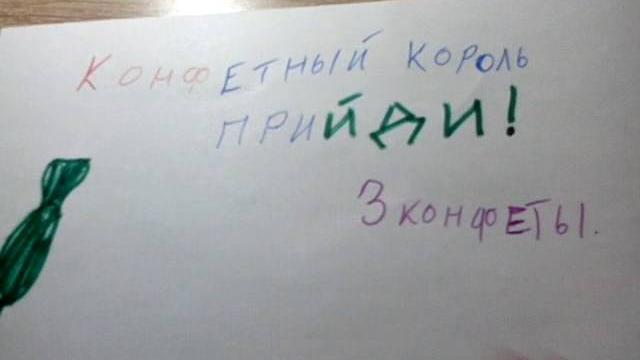 КОНФЕТНЫЙ КОРОЛЬ
ПРИЙДИ!
3 КОНФЕТЫ.